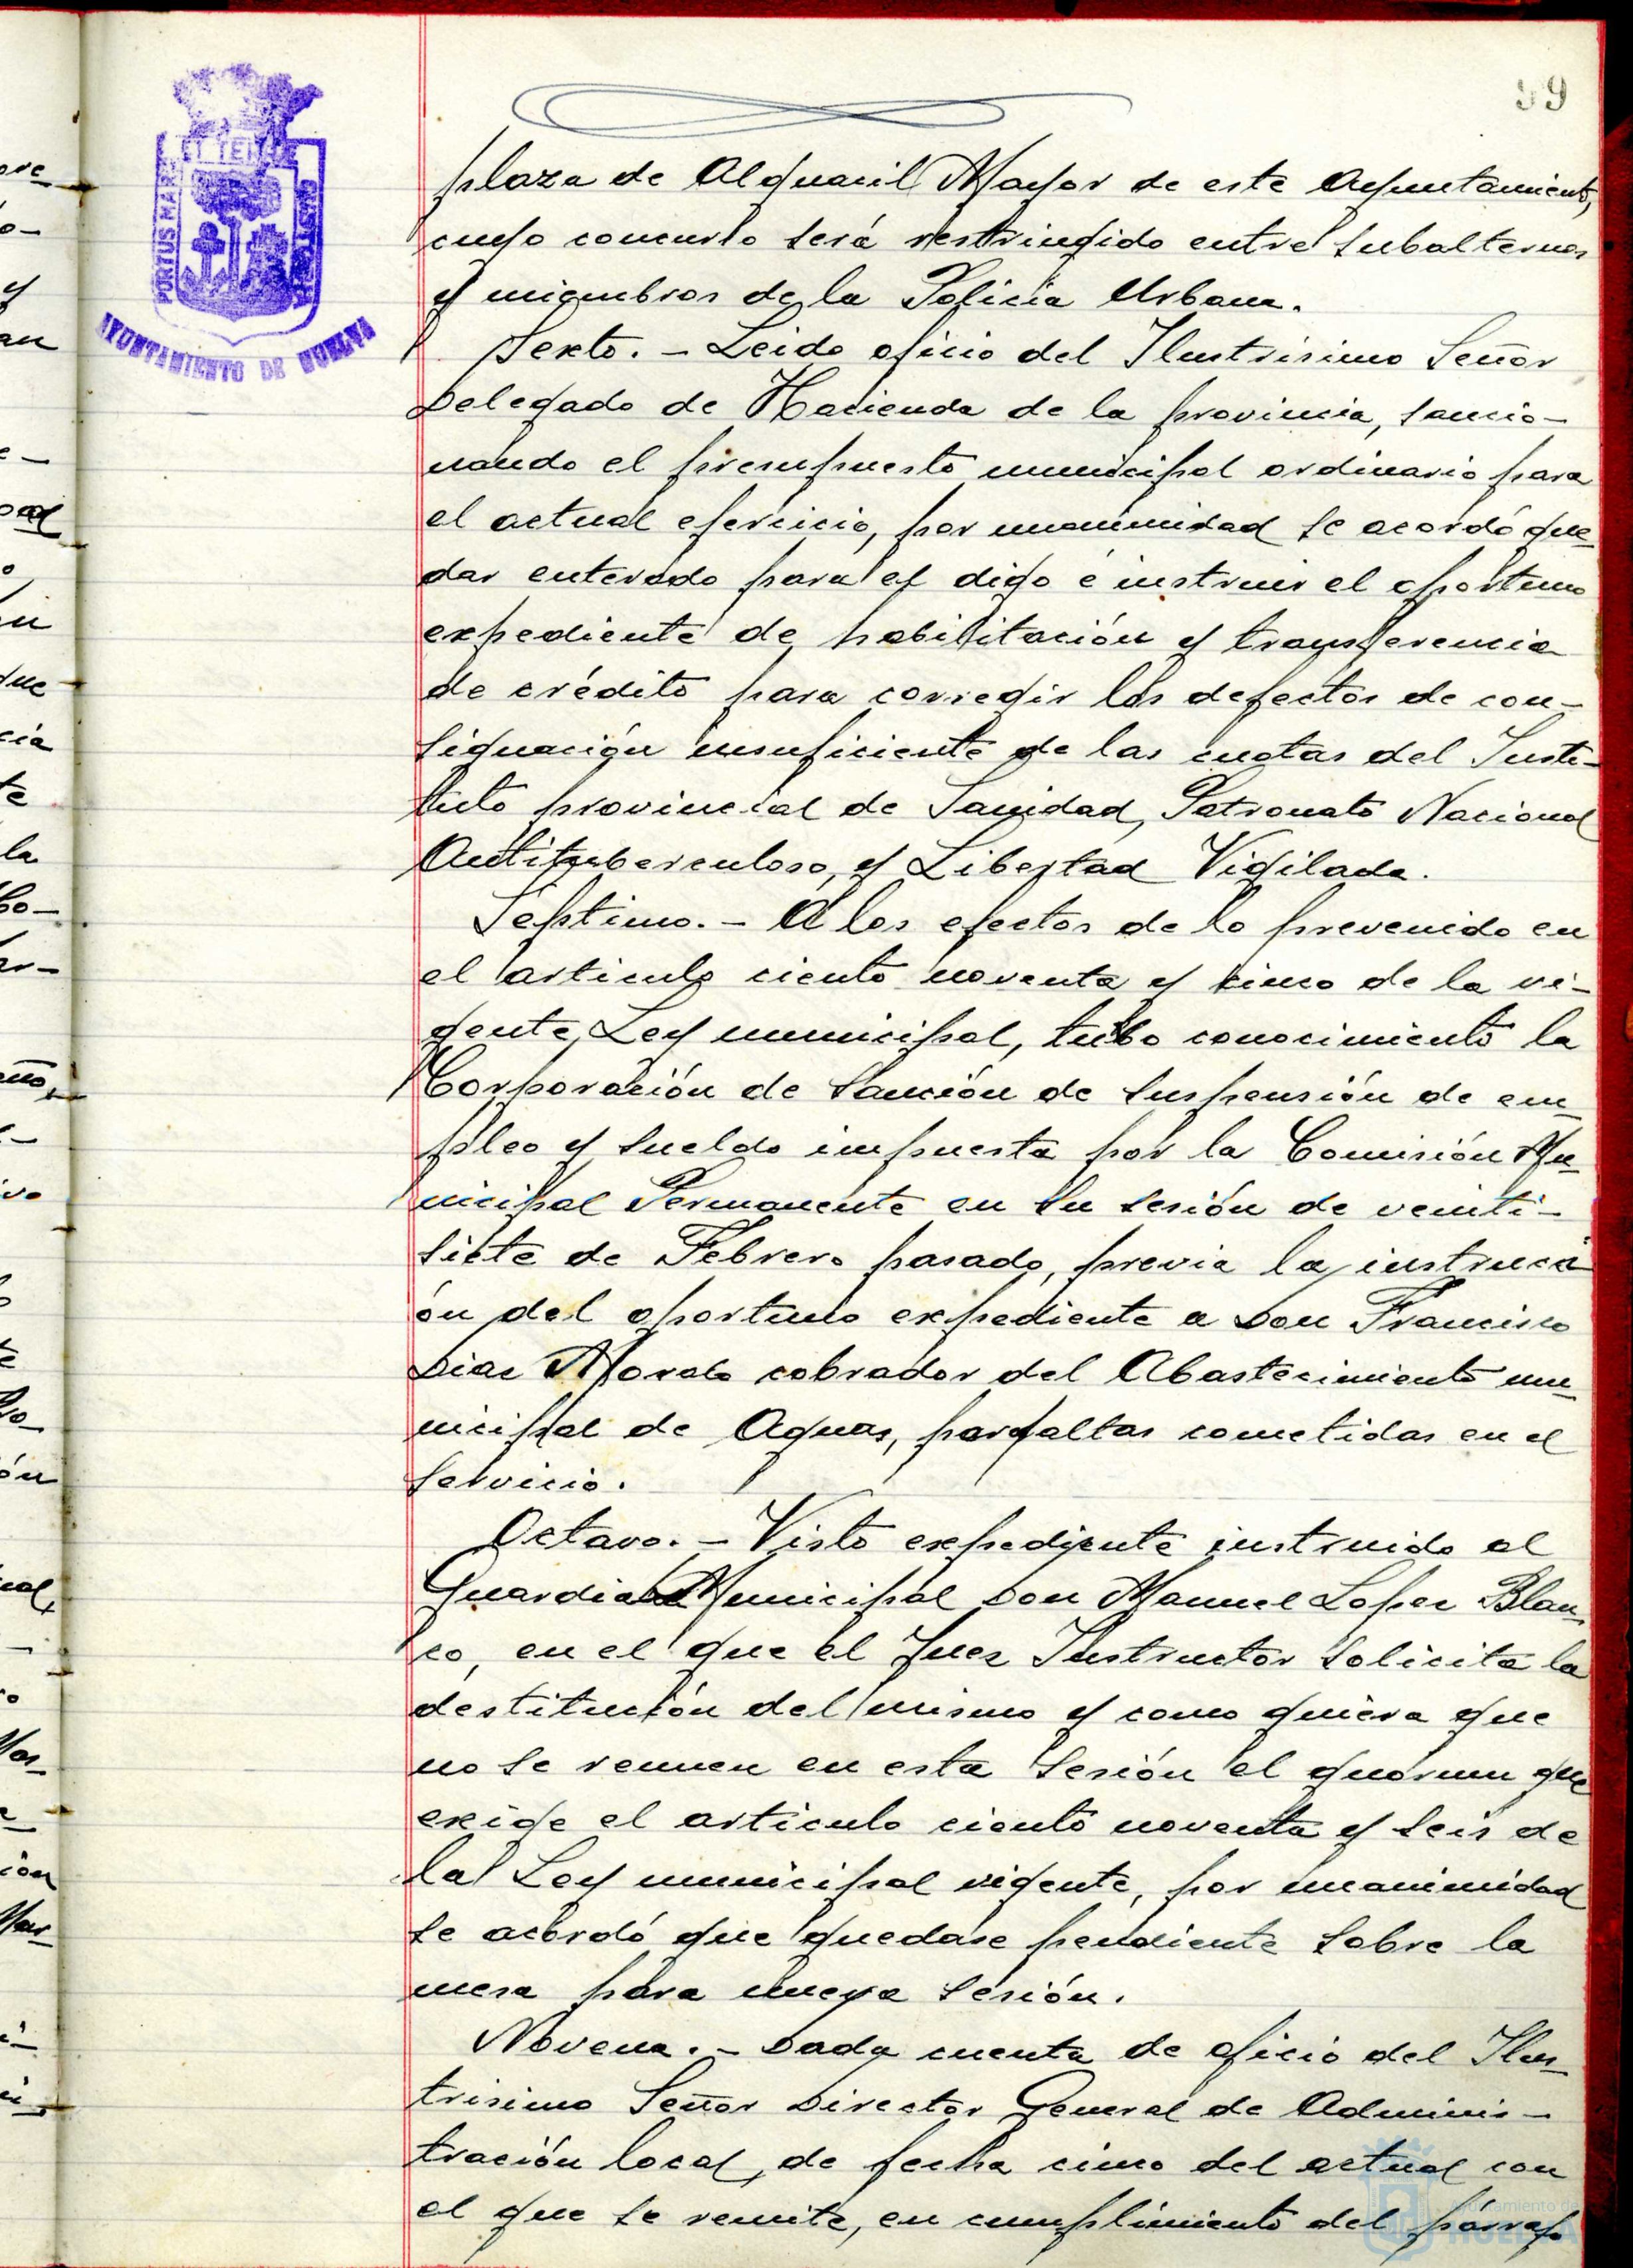 59
PORTUS MARIS ET TERRAE CUSTODIA
AYUNTAMIENTO DE HUELVA
plaza de Alguacil Mayor de este Ayuntamiento,
cuyo concurso será restringido entre subalternos
y miembros de la Policia Urbana.
Sexto. – Leido oficio del Ilustrisimo Señor
Delegado de Hacienda de la provincia, sancio-
nando el presupuesto municipal ordinario para
el actual ejercicio, por unanimidad se acordó que-
dar enterado para el digo é instruir el oportuno
expediente de habilitación y transferencia
de crédito para corregir los defectos de con-
signación insuficiente de las cuotas del Insti-
tuto provincial de Sanidad, Patronato Nacional
Antituberculoso, y Libertad Vigilada.
Septimo. – A los efectos de lo prevenido en
el articulo ciento noventa y cinco de la vi-
gente Ley municipal, tubo conocimiento la
Corporación de sanción de suspensión de em-
pleo y sueldo impuesta por la Comisión Mu-
nicipal Permanente en su sesión de veinti-
siete de Febrero pasado, previa la instrucci-
ón del oportuno expediente a Don Francisco
Diaz cobrador del Abastecimiento mu-
nicipal de Aguas, por faltas cometidas en el
servicio.
Octavo. – Visto expediente instruido al
Guardia Municipal Don Manuel Lopez Blan-
co, en el que el Juez Instructor solicita la
destitución del mismo y como quiera que
no se reunen en esta sesión el quorum que
exige el articulo ciento noventa y seis de
la Ley municipal vigente, por unanimidad
se acordó que quedase pendiente sobre la
mesa para nueva sesión.
Novena. – Dada cuenta de oficio del Ilus-
trisimo Señor Director General de Adminis-
tración local, de fecha cinco del actual con
el que se remite, en cumplimiento del parrafo
Ayuntamiento de
HUELVA